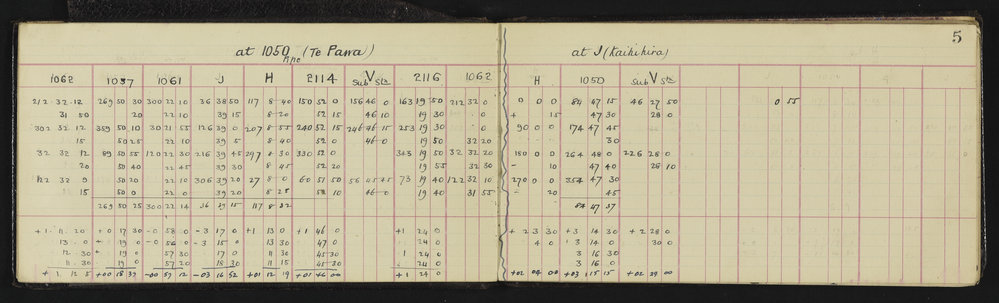 5
at 1050 (Te Pawa)
at J (Kaikihira)
1062 1037 1061 J H 2114 V Sub Stn 2116 1062 H 1050 Sub V Stn
212 32 12 269 50 30 300 22 10 36 38 50 117 8 40 150 52 0 156 46 0 163 19 50 212 32 0 0 0 0 84 47 15 46 27 50 0 55
31 50 20 22 10 39 15 8 20 52 15 46 10 19 30 0 + 15 47 30 28 0
302 32 12 359 50 10 30 21 55 126 39 0 207 8 55 240 52 15 246 46 15 253 19 30 90 0 0 174 47 45
15 50 25 22 10 39 5 8 40 52 0 46 0 19 50 32 20 30
32 32 12 89 50 55 120 22 30 216 39 45 297 8 30 330 52 0 343 19 50 32 32 20 180 0 0 264 48 0 226 28 0
20 50 40 22 45 39 30 8 45 52 20 19 55 32 30 - 10 47 40 28 10
122 32 9 50 20 22 10 306 39 20 27 8 0 60 51 50 56 45 45 73 19 40 122 32 10 270 0 0 354 47 30
15 50 0 22 0 39 20 8 25 52 10 46 0 19 40 31 55 - 20 45
269 50 25 300 22 14 36 39 15 117 8 32 84 47 37
+1 11 20 +0 17 30 -0 58 0 -3 17 0 +1 13 0 +1 46 0 +1 24 0 +2 3 30 +3 14 30 +2 28 0
13 0 + 19 0 -0 56 0 -3 15 0 13 30 47 0 24 0 4 0 3 14 0 30 0
12 30 + 19 0 57 30 17 0 11 30 45 30 1 24 0 3 16 30
11 30 19 0 57 20 18 30 11 15 45 30 24 0 3 16 0
+1 12 5 +00 18 37 -00 57 12 -03 16 52 +01 12 19 +01 46 00 +1 24 0 +02 04 00 +03 15 15 +02 29 00